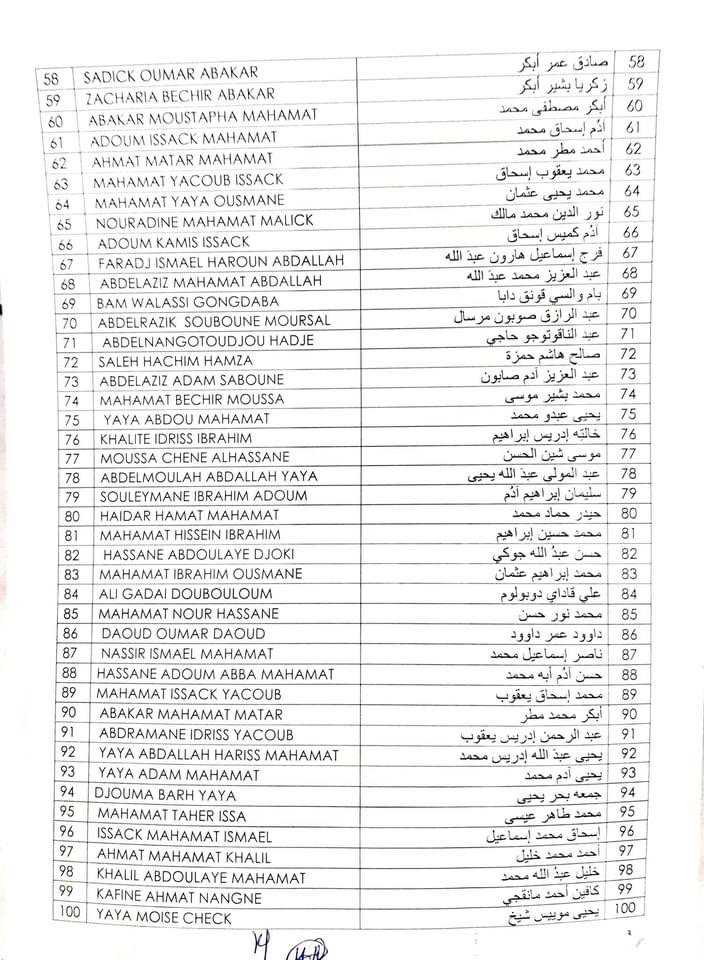 58 SADICK OUMAR ABAKAR صادق عمر أبكر 58
59 ZACHARIA BECHIR ABAKAR زكريا بشير أبكر 59
60 ABAKAR MOUSTAPHA MAHAMAT أبكر مصطفى محمد 60
61 ADOUM ISSACK MAHAMAT آدُم إسحاق محمد 61
62 AHMAT MATAR MAHAMAT أحمد مطر محمد 62
63 MAHAMAT YACOUB ISSACK محمد يعقوب إسحاق 63
64 MAHAMAT YAYA OUSMANE محمد يحيى عثمان 64
65 NOURADINE MAHAMAT MALICK نور الدين محمد مالك 65
66 ADOUM KAMIS ISSACK آدُم كميس إسحاق 66
67 FARADJ ISMAEL HAROUN ABDALLAH فرج إسماعيل هارون عبدَ الله 67
68 ABDELAZIZ MAHAMAT ABDALLAH عبد العزيز محمد عبدَ الله 68
69 BAM WALASSI GONGDABA بام والسي قونق دابا 69
70 ABDELRAZIK SOUBOUNE MOURSAL عبد الرازق صوبون مرسال 70
71 ABDELNANGOTOUDJOU HADJE عبد الناقوتوجو حاجي 71
72 SALEH HACHIM HAMZA صالح هاشم حمزة 72
73 ABDELAZIZ ADAM SABOUNE عبد العزيز آدم صابون 73
74 MAHAMAT BECHIR MOUSSA محمد بشير موسى 74
75 YAYA ABDOU MAHAMAT يحيى عبدو محمد 75
76 KHALITE IDRISS IBRAHIM خالته إدريس إبراهيم 76
77 MOUSSA CHENE ALHASSANE موسى شين الحسن 77
78 ABDELMOULAH ABDALLAH YAYA عبد المولى عبدَ الله يحيى 78
79 SOULEYMANE IBRAHIM ADOUM سليمان إبراهيم آدُم 79
80 HAIDAR HAMAT MAHAMAT حيدر حماد محمد 80
81 MAHAMAT HISSEIN IBRAHIM محمد حسين إبراهيم 81
82 HASSANE ABDOULAYE DJOKI حسن عبدُ الله جوكي 82
83 MAHAMAT IBRAHIM OUSMANE محمد إبراهيم عثمان 83
84 ALI GADAI DOUBOULOUM علي قاداي دوبولوم 84
85 MAHAMAT NOUR HASSANE محمد نور حسن 85
86 DAOUD OUMAR DAOUD داوود عمر داوود 86
87 NASSIR ISMAEL MAHAMAT ناصر إسماعيل محمد 87
88 HASSANE ADOUM ABBA MAHAMAT حسن آدُم أبه محمد 88
89 MAHAMAT ISSACK YACOUB محمد إسحاق يعقوب 89
90 ABAKAR MAHAMAT MATAR أبكر محمد مطر 90
91 ABDRAMANE IDRISS YACOUB عبد الرحمن إدريس يعقوب 91
92 YAYA ABDALLAH HARISS MAHAMAT يحيى عبدَ الله إدريس محمد 92
93 YAYA ADAM MAHAMAT يحيى آدم محمد 93
94 DJOUMA BARH YAYA جمعه بحر يحيى 94
95 MAHAMAT TAHER ISSA محمد طاهر عيسى 95
96 ISSACK MAHAMAT ISMAEL إسحاق محمد إسماعيل 96
97 AHMAT MAHAMAT KHALIL أحمد محمد خليل 97
98 KHALIL ABDOULAYE MAHAMAT خليل عبدُ الله محمد 98
99 KAFINE AHMAT NANGNE كافين أحمد مانقجي 99
100 YAYA MOISE CHECK يحيى موييس شيخ 100